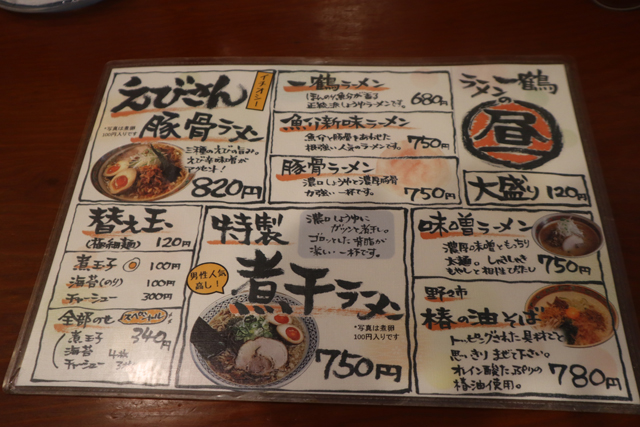 えびさん
イチオシ!
豚骨ラーメン
*写真は煮卵
100円入りです
三種のえびの旨み。
えび辛味噌が
アクセント!
820円
一鶴ラーメン
ほんのり魚介が香る
正統派しょうゆラーメンです。
680円
魚介新味ラーメン
魚介と豚骨をあわせた
根強い人気のラーメンです。
750円
豚骨ラーメン
濃口しょうゆと濃厚豚骨
力強い一杯です。
750円
一鶴
ラーメン
の
昼
大盛り120円
替え玉
(極細麺) 120円
煮玉子 100円
海苔(のり) 100円
チャーシュー 300円
全部のせ スペシャル! 340円
煮玉子
海苔 4枚
チャーシュー
特製
煮干ラーメン
濃口しょうゆに
ガツンと煮干し。
ゴロッとした背脂が
深い一杯です。
男性人気
高し!
*写真は煮卵
100円入りです
750円
味噌ラーメン
濃厚味噌ともっちり
太麺。しゃきしゃき
もやしと相性ばっちり
750円
野々市
椿の油そば
トッピングされた具材ごと
思っきりまぜて下さい。
オレイン酸たっぷりの
椿油使用。
780円